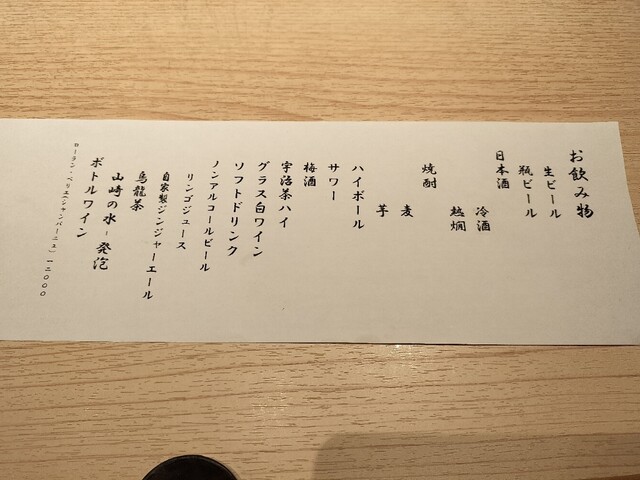 お飲み物
生ビール
瓶ビール
日本酒
冷酒
越燗
焼酎
麦
芋
ハイボール
サワー
梅酒
宇治茶ハイ
グラス白ワイン
ソフトドリンク
ノンアルコールビール
リンゴジュース
自家製ジンジャーエール
烏龍茶
山崎の水-発泡
ボトルワイン
ローラン・ペリエ(シャンパーニュ)一二〇〇〇